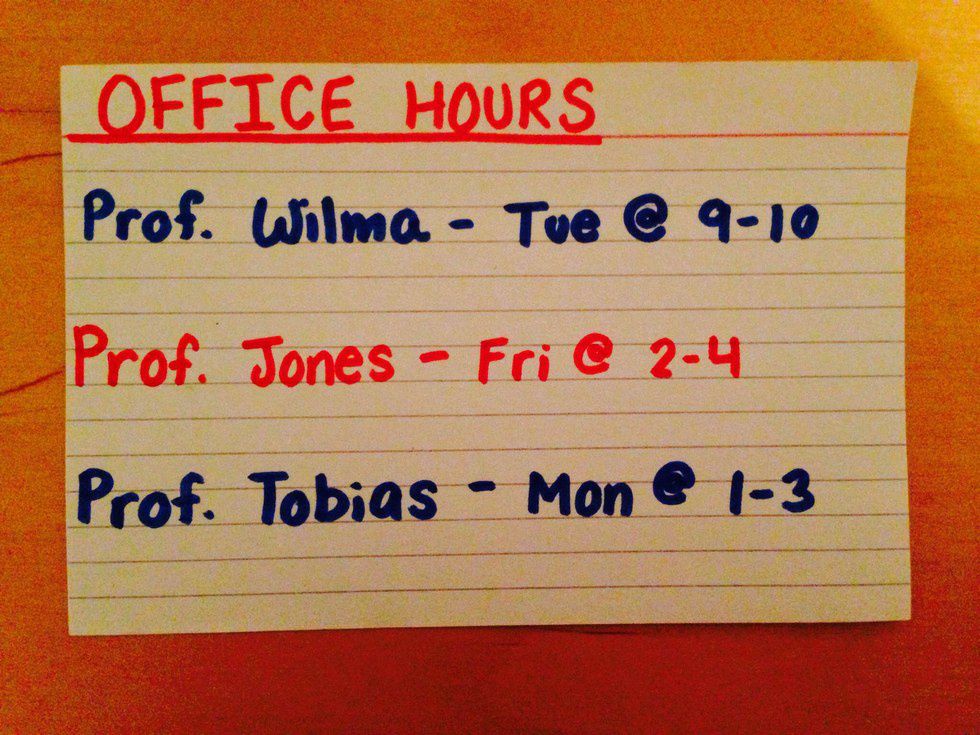 OFFICE HOURS
Prof. Wilma - Tue @ 9-10
Prof. Jones - Fri @ 2-4
Prof. Tobias - Mon @ 1-3